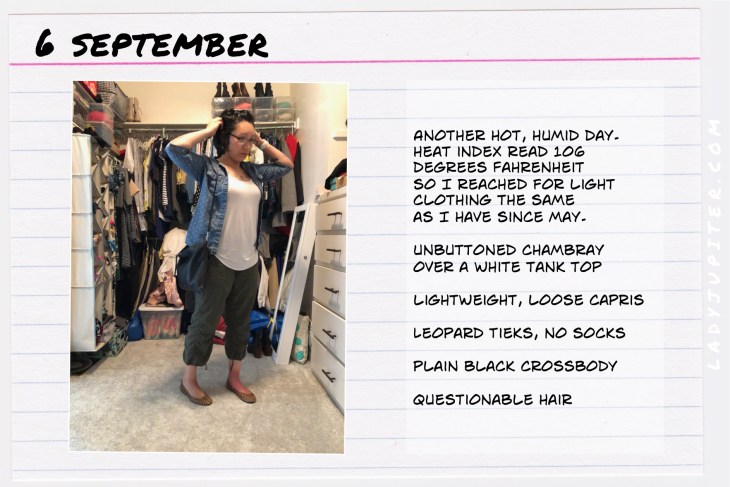 6 SEPTEMBER
ANOTHER HOT, HUMID DAY.
HEAT INDEX READ 106
DEGREES FAHRENHEIT
SO I REACHED FOR LIGHT
CLOTHING THE SAME
AS I HAVE SINCE MAY.
UNBUTTONED CHAMBRAY
OVER A WHITE TANK TOP
LIGHTWEIGHT, LOOSE CAPRIS
LEOPARD TIEKS, NO SOCKS
PLAIN BLACK CROSSBODY
QUESTIONABLE HAIR
LADYJUPITER.COM